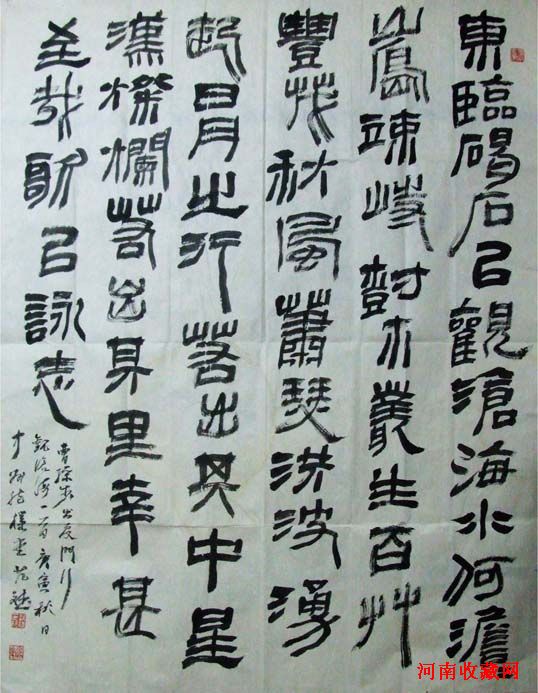 東臨碣石㠯觀滄海水何澹
山島竦峙樹木叢生百艸
豐茂秋風蕭瑟洪波湧
起日月之行若出其中星
漢燦爛若出其里幸甚
至哉歌㠯詠志
曹操步出夏門行
觀滄海一首庚寅秋日
河南收藏网